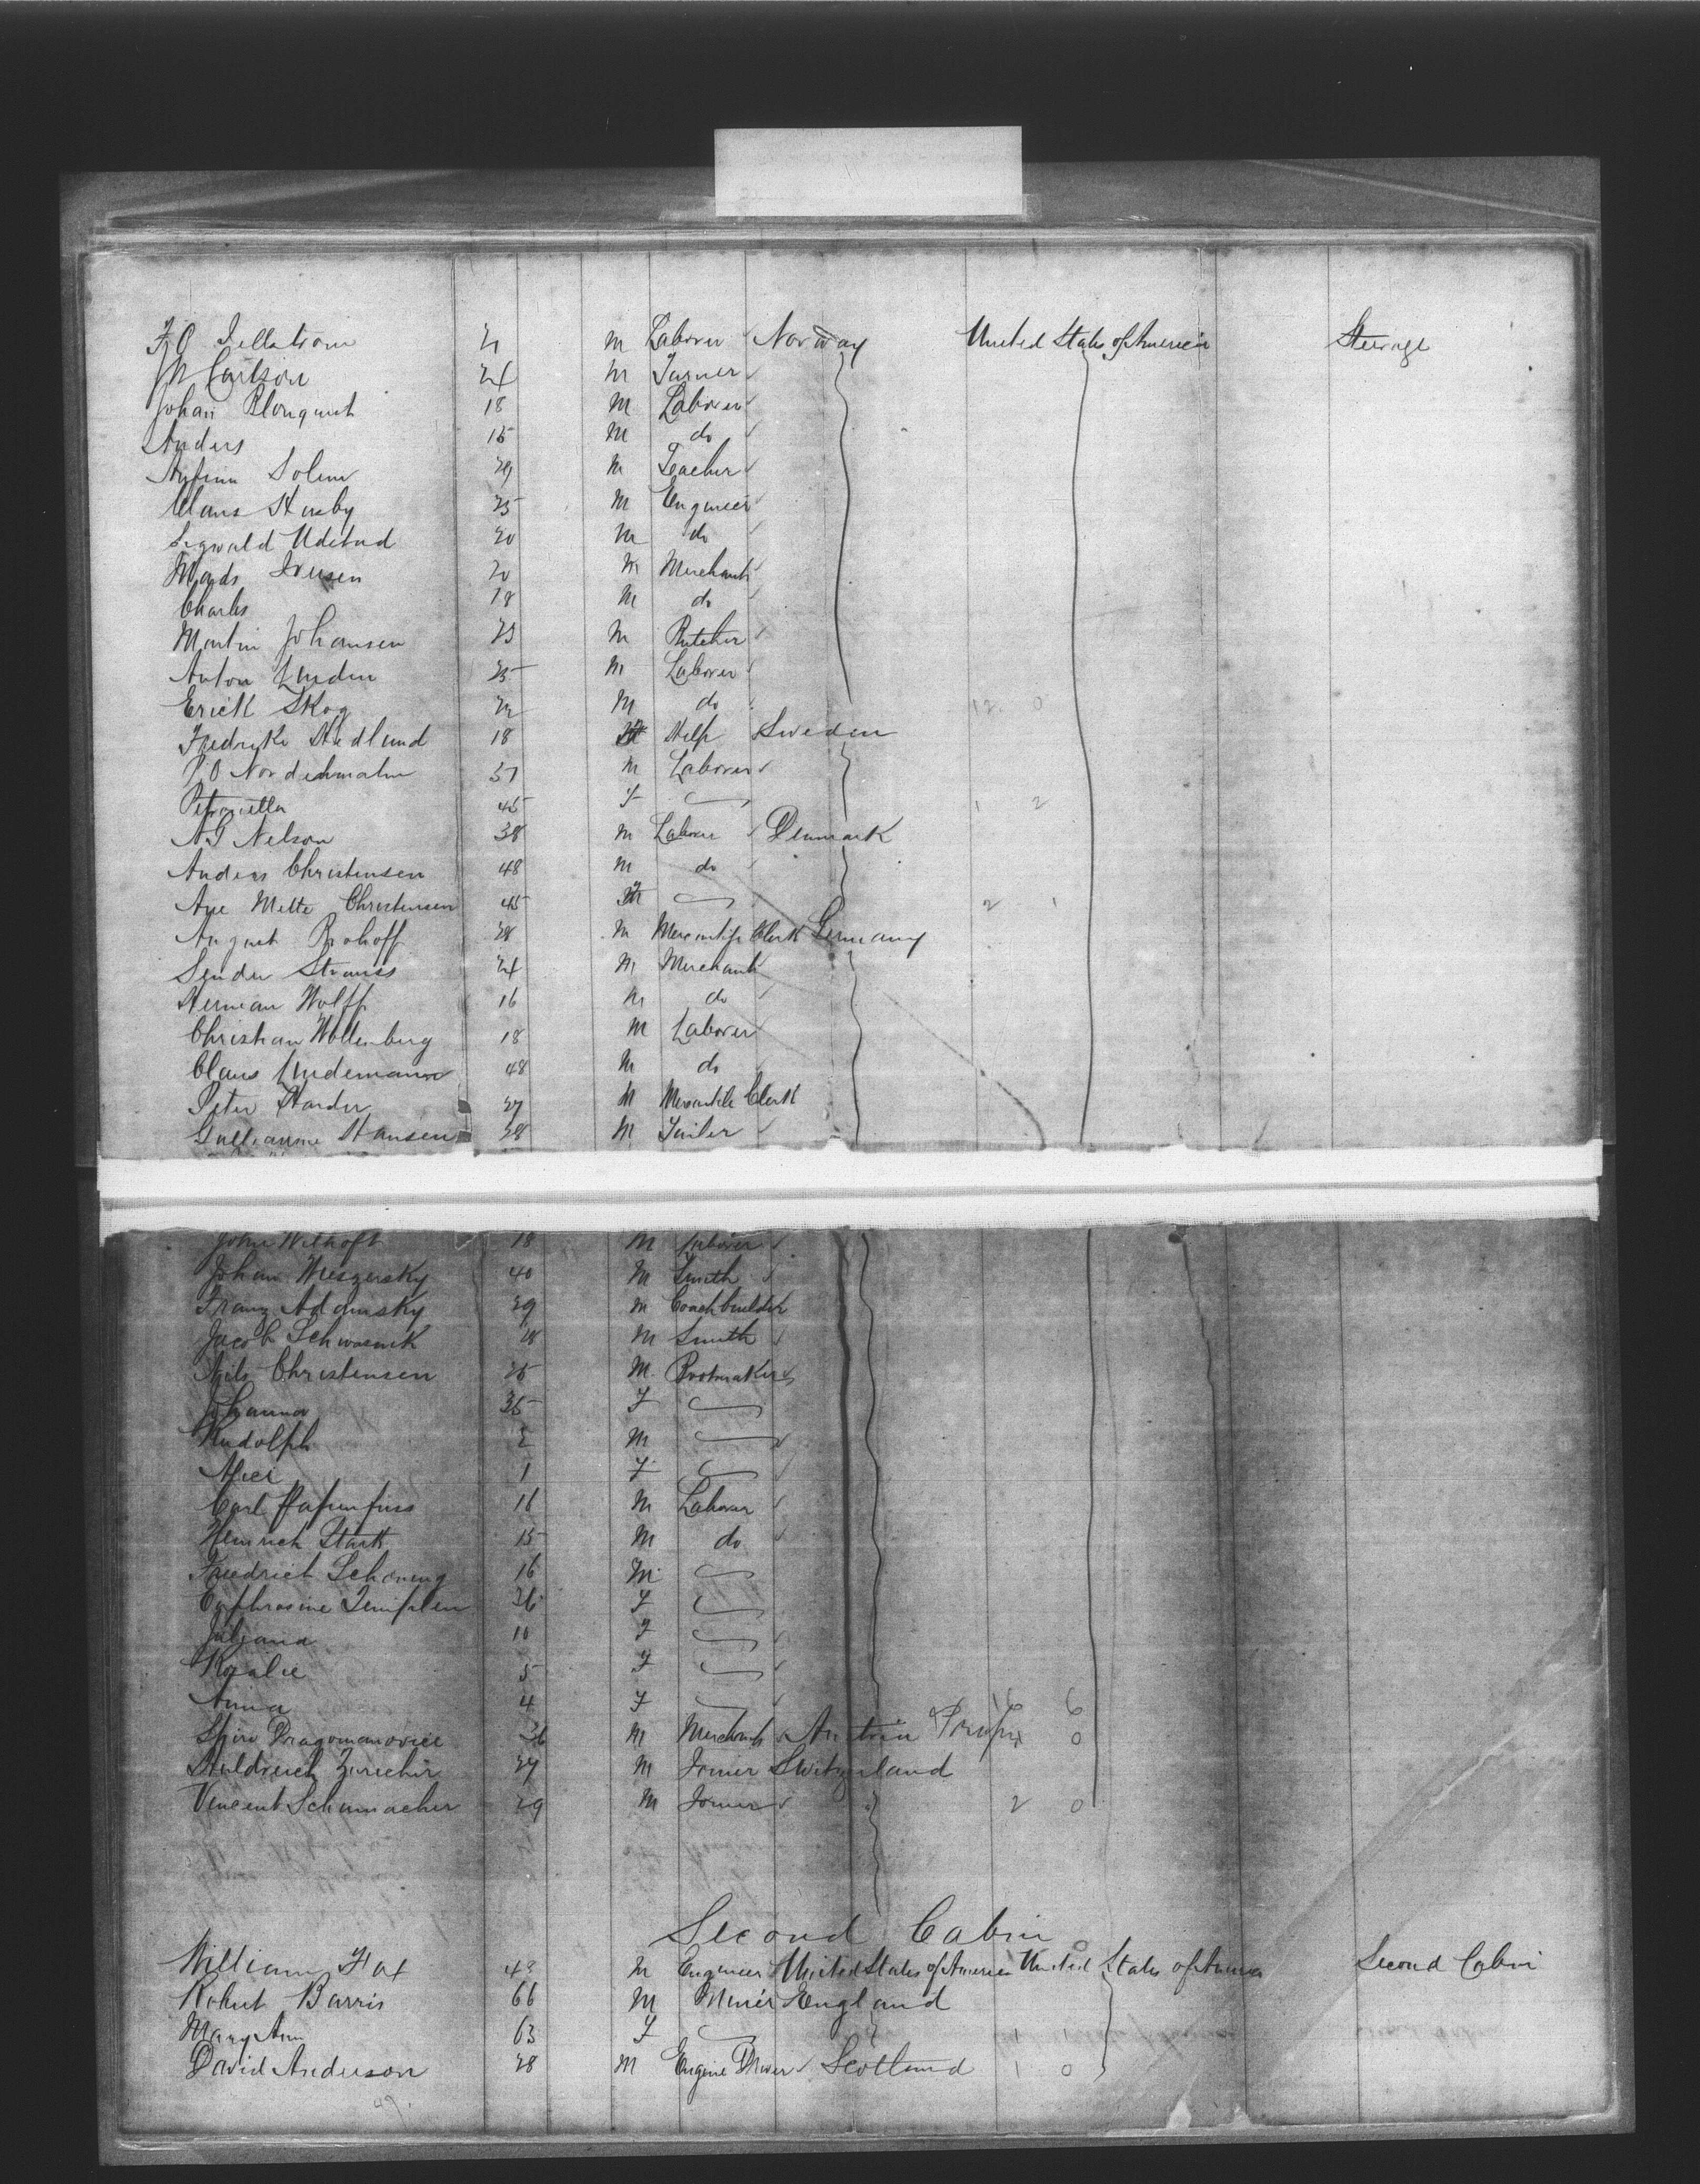 M Laborer Norway United States of America Steerage
Carlson 24 M Turner
Johan Blonquist 18 M Laborer
Anders 15 M do
Solem 29 M Teacher
Claus Huseby 25 M Engineer
Sigwald Udstad 20 M do
Mads Iversen 20 M Merchant
Charles 18 M do
Martin Johansen 23 M Butcher
Anton Linden 25 M Laborer
Erick Skog 22 M do 12 0
Fredrike Hedlund 18 Help Sweden
P O 37 M Laborer
Petronella 45 F 1 2
N G Nelson 38 M Laborer Denmark
Anders Christensen 48 M do
Ane Mette Christensen 45 F 2 1
August 28 M Mercantile Clerk Germany
Sender Strauss 24 M Merchant
Herman Wolff 16 M do
Christian Wollenberg 18 M Laborer
Claus Lindemann 48 M do
Peter Harder 27 M Mercantile Clerk
Guilliaume Hansen 28 M Tailer
John Withoft 18 M Laborer
Johan Wieszersky 40 M Smith
Franz Adamsky 29 M Coachbuilder
Jacob 28 M Smith
Nils Christensen 35 M Bootmaker
Johanna 35 F
Rudolph 2 M
1 F
Carl 16 M Laborer
Heinrich Stark 15 M do
Friedrich Schoning 16 M
Euphrosine Templen 36 F
Juliana 10 F
Rosalie 5 F
Anna 4 F 16 6
Spiro Dragomanovice 26 M Merchant Austria 0
Huldreich Zuricher 27 M Joiner Switzerland
Vincent Schumacher 29 M Joiner 2 0
Second Cabin
William Fox M Engineer United States of America United States of America Second Cabin
Robert Barris 66 M Miner England
Mary Ann 63 F 1 1
David Anderson 28 M Engine Driver Scotland 1 0
49